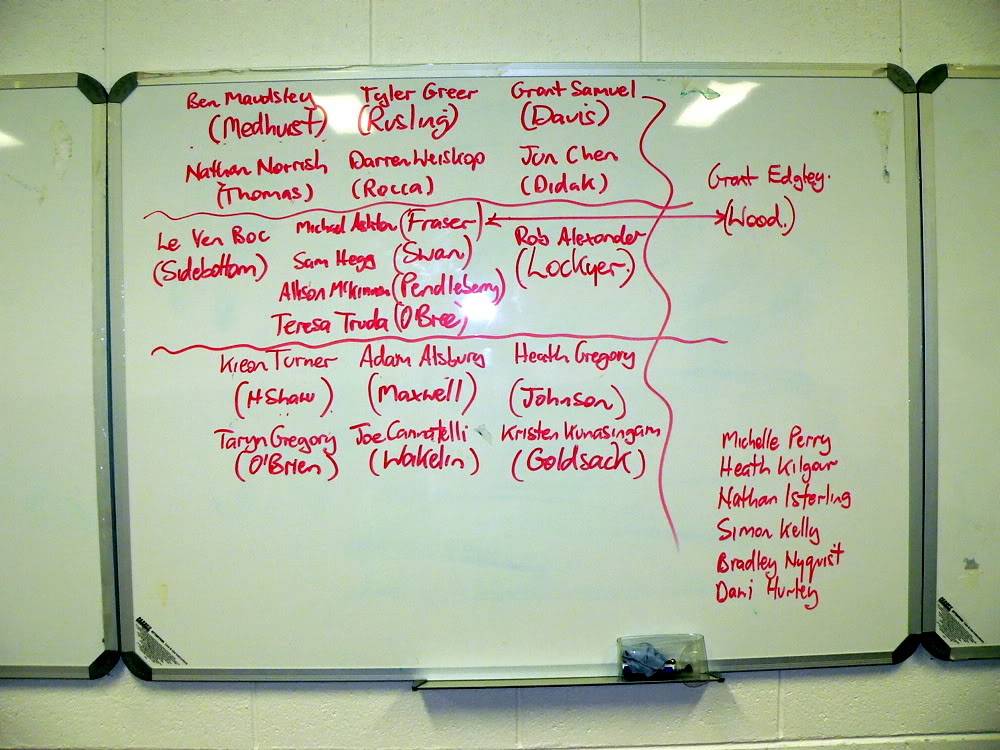 Ben Maudsley Tyler Greer Grant Samuel
(Medhurst) (Rusling) (Davis)
Nathan Norrish Darren Weiskop Jon Chen
(Thomas) (Rocca) (Didak)
Grant Edgley.
(Wood.)
Le Ven Boc Michael Ashton (Fraser) Rob Alexander
(Sidebottom) Sam Hegg (Swan) (Lockyer.)
Allison McKinnon (Pendleberry)
Teresa Truda (O'Bree)
Kieon Turner Adam Alsbury Heath Gregory
(H Shaw) (Maxwell) (Johnson)
Taryn Gregory Joe Cannatelli Kristen Kunasingam
(O'Brien) (Wakelin) (Goldsack)
Michelle Perry
Heath Kilgour
Nathan Isterling
Simon Kelly
Bradley Nyquist
Dani Hurley